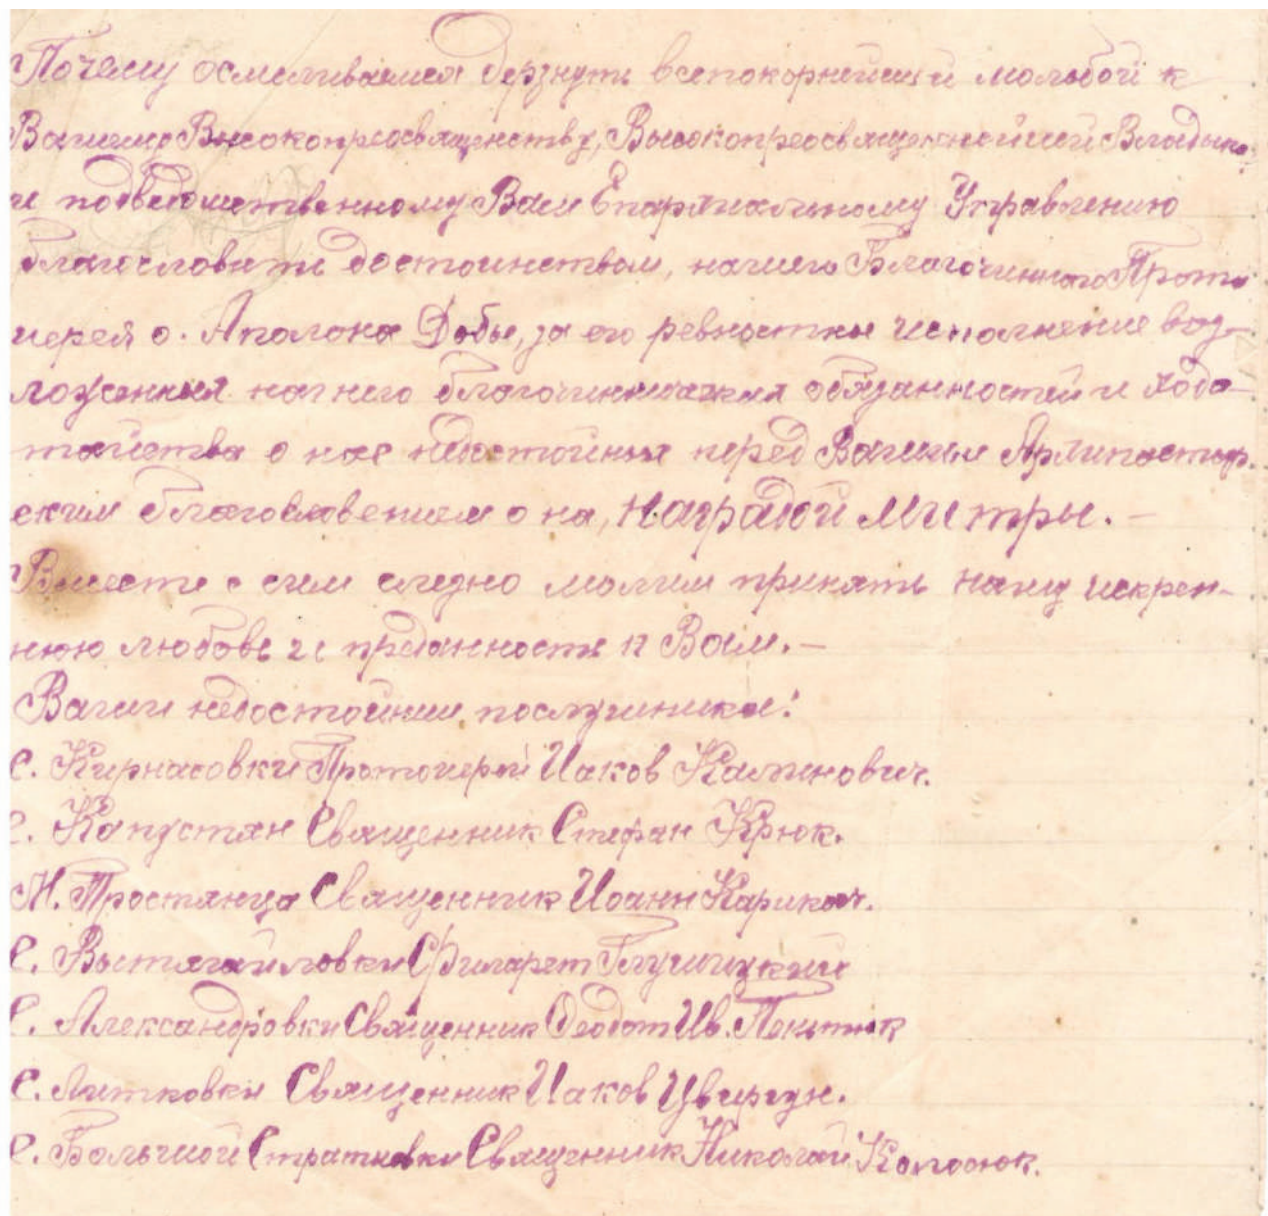 Почему осмеливаемся дерзнуть всепокорнейшей мольбой к
Вашему Высокопреосвященству, Высокопреосвященнейший Владыко,
и подведомственному Вам Епархиальному Управлению
благословити достоинством, нашего Благочинного Прото
иерея о. Аполона Добы, за его ревностное исполнение воз-
ложенных на него благочиннических обязанностей и хода-
тайства о нас недостойных перед Вашим Архипастыр.
ским благословением о на, наградой Митры. –
Вместе с сим слезно молим принять нашу искрен-
нюю любовь и преданность к Вам. –
Ваши недостойнии послушники:
с. Кирнасовки Протоиерей Иаков Калинович.
с. Капустян Священник Стефан Крюк.
М. Тростянца Священник Иоанн
с. Филарет Глушицкий
с. Александровки Священник Феодот Ив.
с. Летковки Священник Иаков Цвиргун.
с. Большой Стратиевки Священник Николай